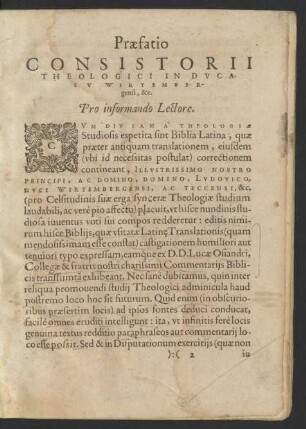 Præfatio
CONSISTORII
THEOLOGICI IN DVCA-
TV WIRTEMBER-
gensi, &c.
Pro informando Lectore.
CVM DIV SANÆ THEOLOGIÆ
Studiosis expetita sint Biblia Latina, quæ
præter antiquam translationem, eiusdem
(vbi id necessitas postulat) correctionem
contineant, ILLVSTRISSIMO NOSTRO
PRINCIPI, AC DOMINO, DOMINO, LVDOVICO,
DVCI WIRTEMBERGENSI, AC TECCENSI, &c.
(pro Celsitudinis suæ erga synceræ Theologiæ studium
laudabili, ac verè pio affectu) placuit, vt hisce mundinis stu-
diosa iuuentus voti sui compos redderetur: editis nimi-
rum hisce Biblijs, quæ vsitatæ Latinę Translationis (quam
mendosissimam esse constat) castigationem humiliori aut
tenuiori typo expressam, eamque ex D. D. Lucæ Osiandri,
Collegæ & fratris nostri charissimi Commentarijs Bibli-
cis transsumtā exhibeant. Nec sanè dubitamus, quin inter
reliqua promouendi studij Theologici adminicula haud
postremo loco hoc sit futurum. Quid enim (in obscurio-
ribus præsertim locis) ad ipsos fontes deduci conducat,
facilè omnes eruditi intelligunt: ita, vt infinitis ferè locis
genuina textus redditio paraphraseos aut commentarij lo-
co esse possit. Sed & in Disputationum exercitijs (quæ non
):( 2 iu